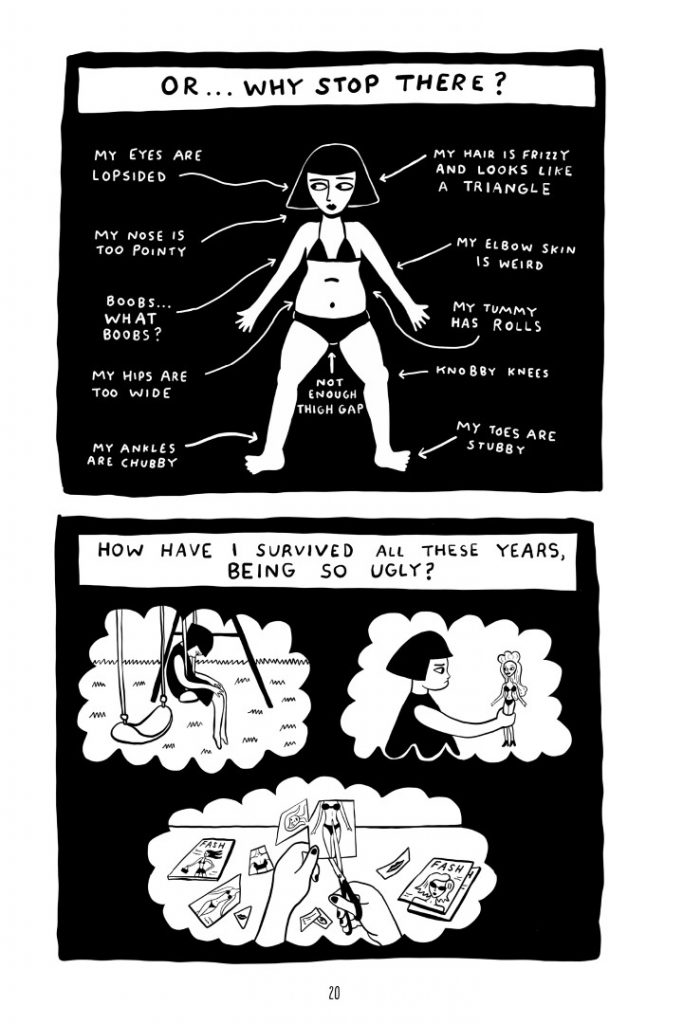 OR... WHY STOP THERE?
MY EYES ARE
LOPSIDED
MY HAIR IS FRIZZY
AND LOOKS LIKE
A TRIANGLE
MY NOSE IS
TOO POINTY
MY ELBOW SKIN
IS WEIRD
BOOBS...
WHAT
BOOBS?
MY TUMMY
HAS ROLLS
MY HIPS ARE
TOO WIDE
NOT
ENOUGH
THIGH GAP
KNOBBY KNEES
MY ANKLES
ARE CHUBBY
MY TOES ARE
STUBBY
HOW HAVE I SURVIVED ALL THESE YEARS,
BEING SO UGLY?
FASH
FASH
20